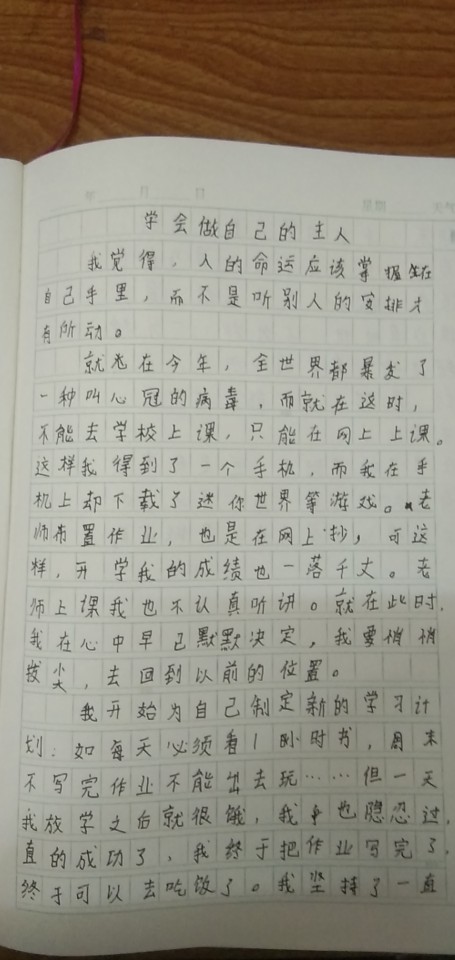 学会做自己的主人
我觉得，人的命运应该掌握在
自己手里，而不是听别人的安排才
有所动。
就光在今年，全世界都暴发了
一种叫心冠的病毒，而就在这时，
不能去学校上课，只能在网上上课。
这样我得到了一个手机，而我在手
机上却下载了迷你世界等游戏。老
师布置作业，也是在网上抄，可这
样，开学我的成绩也一落千丈。老
师上课我也不认真听讲。就在此时，
我在心中早已默默决定，我要悄悄
拔尖，去回到以前的位置。
我开始为自己制定新的学习计
划：如每天必须看1小时书，周末
不写完作业不能出去玩……但一天
我放学之后就很饿，我也隐忍过，
直的成功了，我终于把作业写完了，
终于可以去吃饭了。我坚持了一直